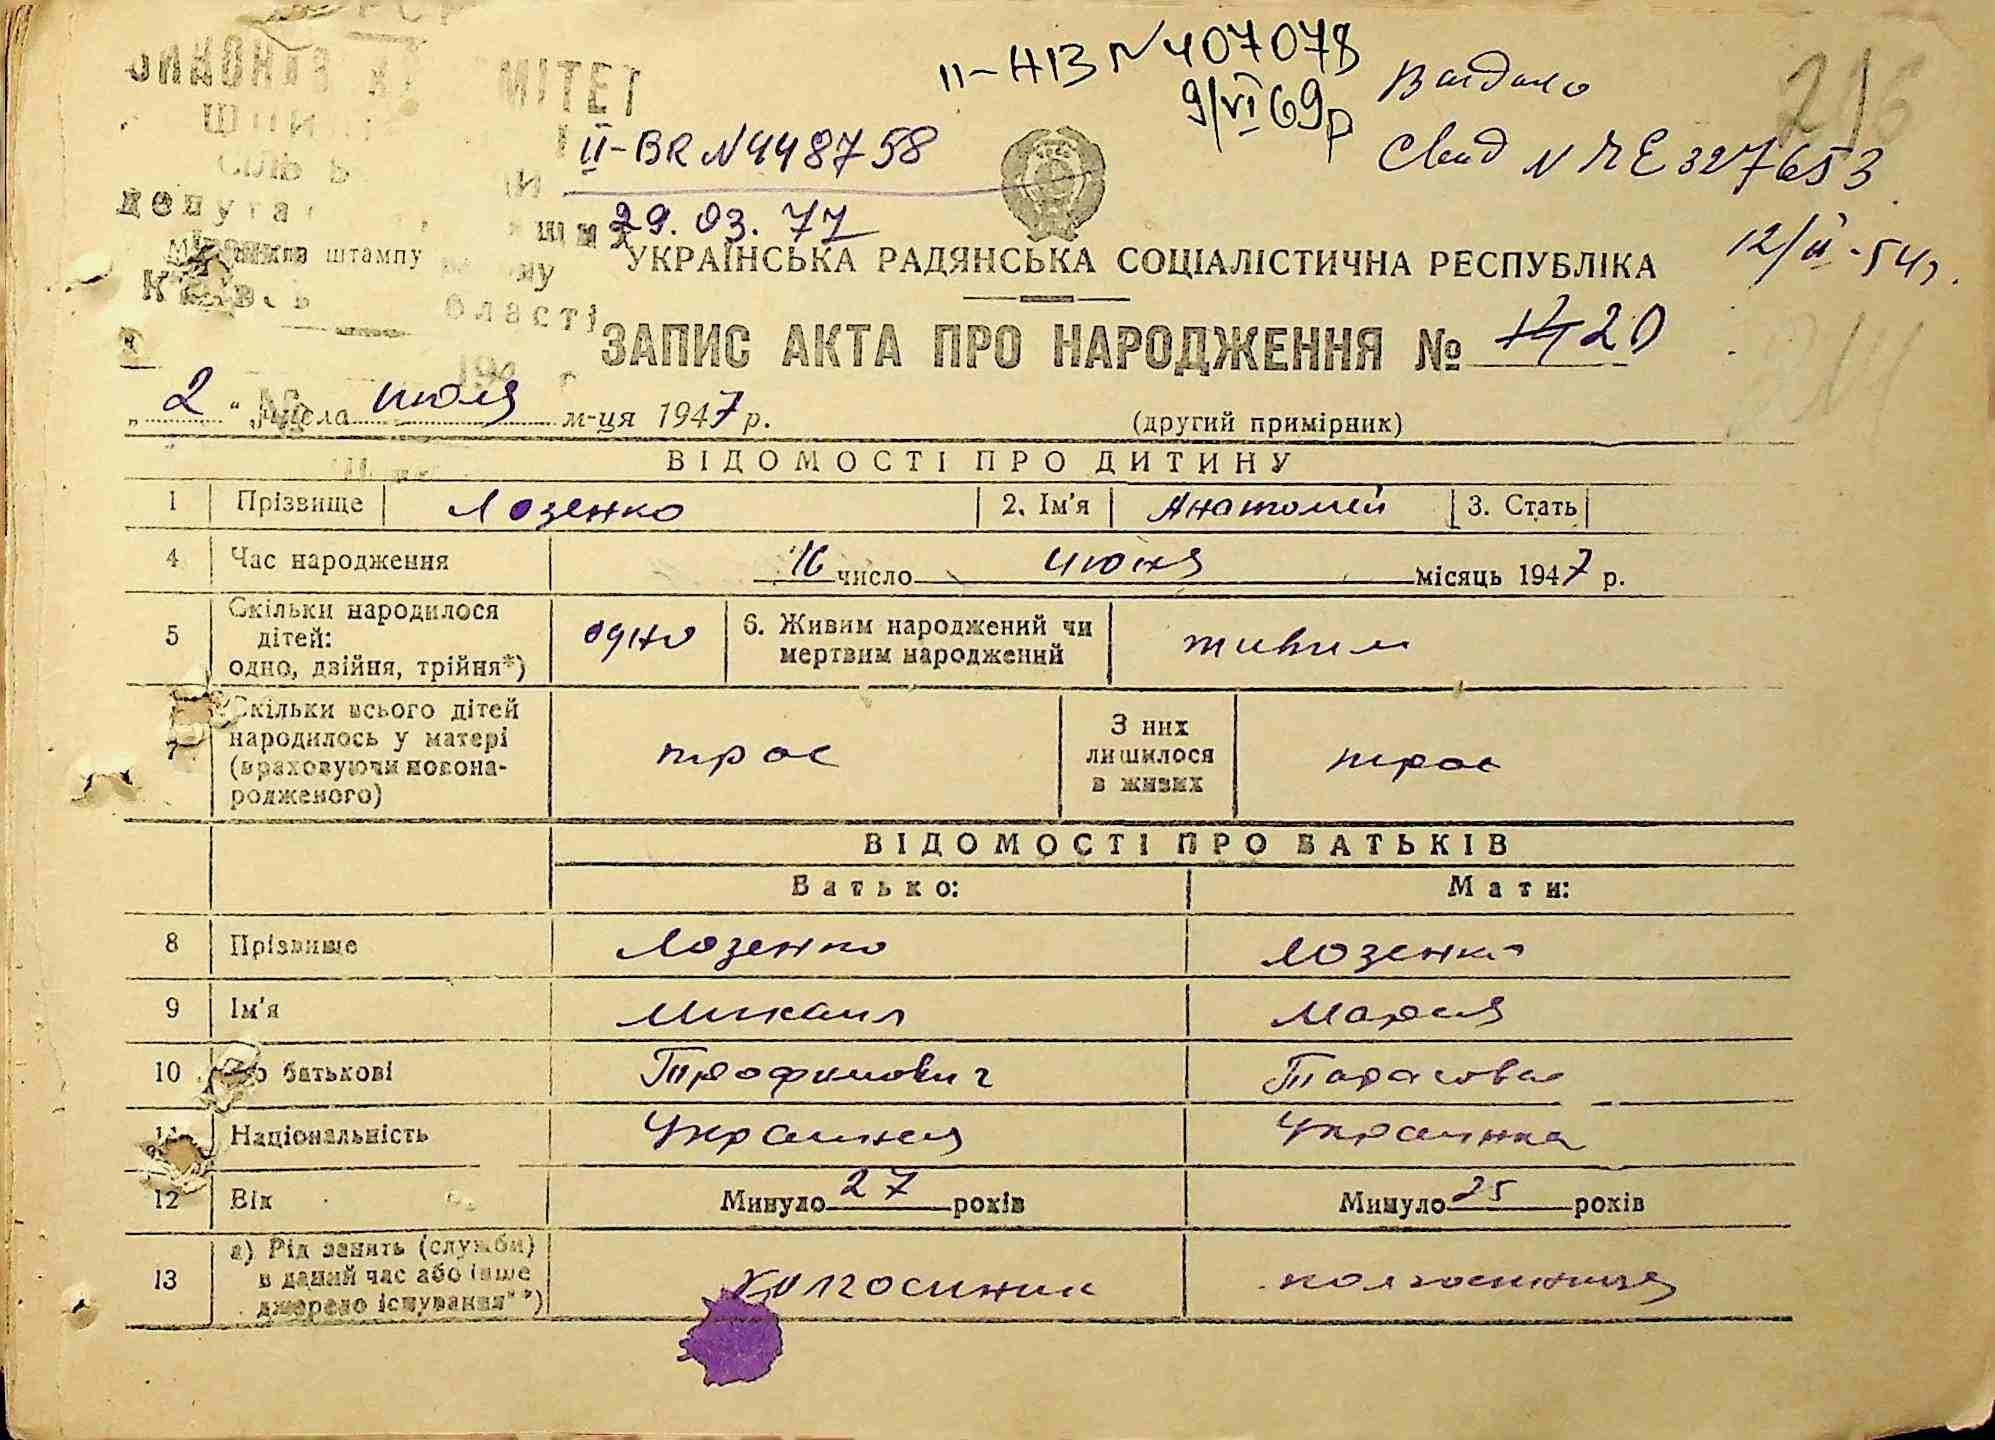 МІТЕТ
II-НВ N 407078
9/VI 69р
Видано
Свид N ЧЕ 327653
12/II-54г.
II-ВR N 448758
29.03.77
депута
Місце штампу
області
УКРАЇНСЬКА РАДЯНСЬКА СОЦІАЛІСТИЧНА РЕСПУБЛІКА
ЗАПИС АКТА ПРО НАРОДЖЕННЯ № 20
„2“ числа июля м-ця 1947 р. (другий примірник)
ВІДОМОСТІ ПРО ДИТИНУ
1 Прізвище Лозенко 2. Ім'я Анатолий 3. Стать
4 Час народження 16 число июня місяць 1947 р.
5 Скільки народилося дітей: одно, двійня, трійня*) одно 6. Живим народжений чи мертвим народжений живим
7 Скільки всього дітей народилось у матері (враховуючи новонародженого) трое З них лишилося в живих трое
ВІДОМОСТІ ПРО БАТЬКІВ
Батько: Мати:
8 Прізвище Лозенко Лозенко
9 Ім'я Михаил Мария
10 По батькові Трофимович Тарасовна
11 Національність Украинец Украинка
12 Вік Минуло 27 років Минуло 25 років
13 а) Рід занять (служби) в даний час або інше джерело існування**) Колгоспник колгоспница